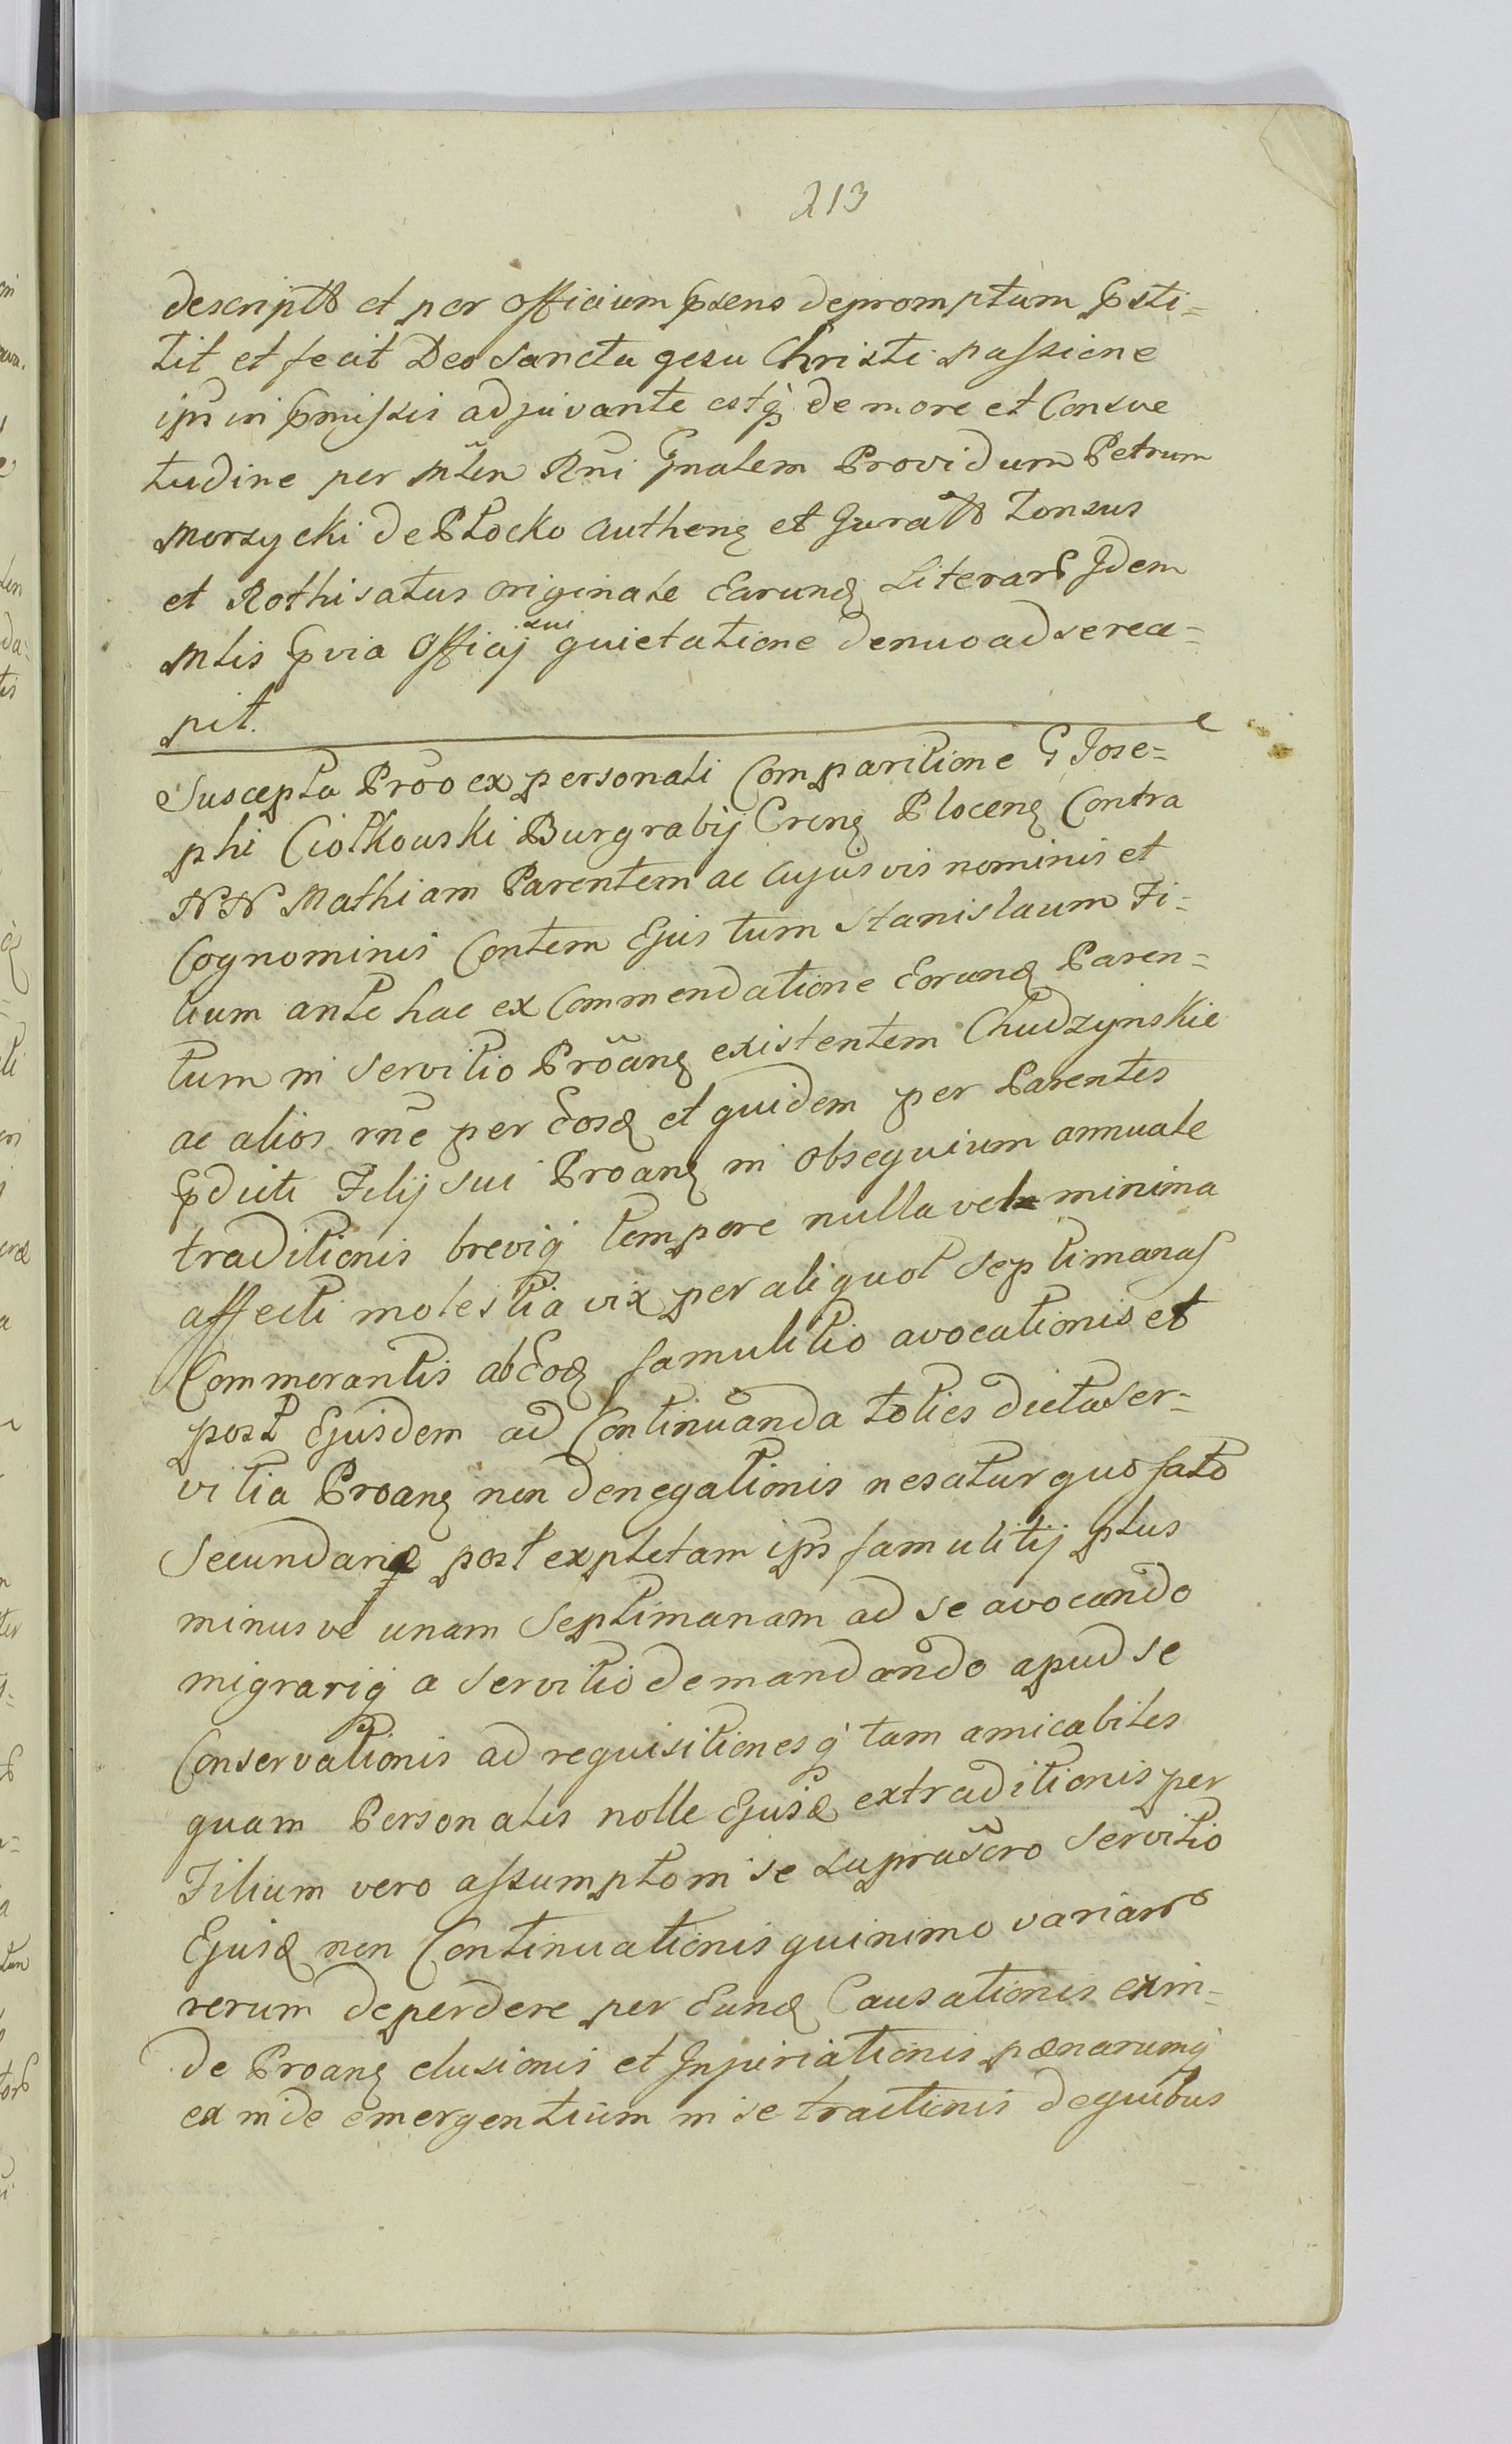 213
descriptt et per Officium pnsens depromptum psti=
tit et fecit Deo Sancta gesu Christi passione
ipsi in pmissis adjuvante estq de more et Consve
tudine per Mtlem Rni Gnalem Providum Petrum
Morzycki de Plocko authenq et Juratt Zonsus
et Rothisatus originale Earund Literarp Idem
Mtlis pvia Officij sui quietatione denuo ad se rece=
pit.
Suscepta Prõo ex personali Comparitione G Jose=
phi Ciołkowski Burgrabij Crenq Plocenq Contra
NN Mathiam Parentem ac cujusvis nominis et
Cognominis Contem Ejus tum Stanislaum Fi=
lium ante hac ex Commendatione Eorund Paren=
tum in Servitio Prõanq existentem Chudzynskie
ac alios rnẽ per Eosd et quidem per Parentes
pdicti Filij sui Proanq in obsequium annuale
traditionis breviq tempore nulla vel minima
affecti molestia vix per aliquot Septimanas
Commorantis ab Eod famulitio avocationis et
post Ejusdem ad Continuanda toties dicta Ser=
vitia Proanq non denegationis nesatur quo fato
Secundario post expletam ips famulitij plus
minusve unam Septimanam ad se avocando
migrariq a servitio demandando apud se
Conservationis ad requisitionesq tam amicabiles
quam Personales nolle Ejusd extraditionis per
Filium vero assumpto in se suprascro Servitio
Ejusd non Continuationis quinimo variarr
rerum deperdere per Eund Causationis exin=
de Proanq elusionis et Injuriationis pænarumq
exinde emergentium in se tractionis de quibus